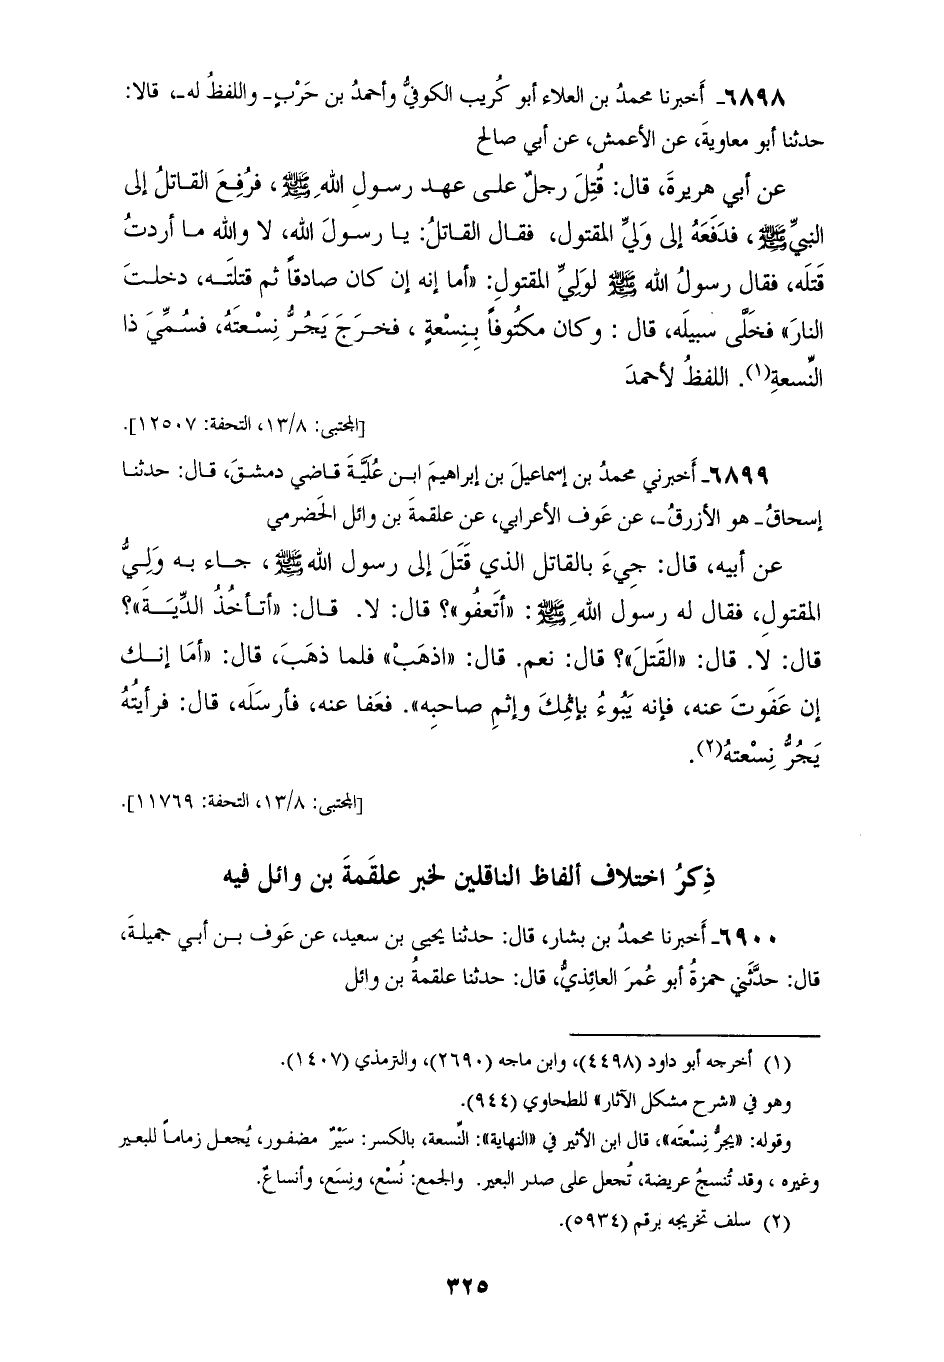 ٦٨٩٨ـ أَخبرنا محمدُ بن العلاء أبو كُريب الكوفيُّ وأحمدُ بن حَرْبٍ ـ واللفظُ له ـ، قالا:
حدثنا أبو معاويةَ، عن الأعمش، عن أبي صالح
عن أبي هريرةَ، قال: قُتِلَ رجلٌ على عهد رسولِ الله ﷺ، فرُفِعَ القاتلُ إلى
النبيِّ ﷺ، فدَفَعَهُ إلى وَليِّ المقتول، فقال القاتلُ: يا رسولَ الله، لا والله ما أردتُ
قَتلَه، فقال رسولُ الله ﷺ لوَلِيِّ المقتولِ: «أما إنه إن كان صادقاً ثم قتلتَه، دخلتَ
النارَ» فخَلَّى سبيلَه، قال: وكان مكتُوفاً بِنِسْعةٍ، فخرَجَ يَجُرُّ نِسْعتَهُ، فسُمِّيَ ذا
النِّسعةِ(١). اللفظُ لأحمدَ
[المجتبى: ١٣/٨، التحفة: ١٢٥٠٧].
٦٨٩٩ـ أَخبرني محمدُ بن إسماعيلَ بن إبراهيمَ ابن عُلَيَّةَ قاضي دمشقَ، قال: حدثنا
إسحاقُ ـ هو الأزرقُ ـ، عن عَوف الأعرابي، عن علقمةَ بن وائل الحَضرمي
عن أبيه، قال: جِيءَ بالقاتل الذي قَتَلَ إلى رسول الله ﷺ، جاء به وَلِيُّ
المقتولِ، فقال له رسول اللهِ ﷺ: «أتَعفُو»؟ قال: لا. قال: «أتأخُذُ الدِّيَةَ»؟
قال: لا. قال: «القَتلَ»؟ قال: نعم. قال: «اذهَبْ» فلما ذهَبَ، قال: «أمَا إنك
إن عَفَوتَ عنه، فإنه يَبُوءُ بإثمِكَ وإثمِ صاحبِه». فعَفا عنه، فأرسَلَه، قال: فرأيتُهُ
يَجُرُّ نِسْعتهُ(٢).
[المجتبى: ١٣/٨، التحفة: ١١٧٦٩].
ذِكرُ اختلاف ألفاظ الناقلين لخبر علقَمةَ بن وائل فيه
٦٩٠٠ـ أَخبرنا محمدُ بن بشار، قال: حدثنا يحيى بن سعيد، عن عَوف بن أبي جميلةَ،
قال: حدَّثَني حمزةُ أبو عُمرَ العائِذيُّ، قال: حدثنا علقمةُ بن وائل
(١) أخرجه أبو داود (٤٤٩٨)، وابن ماجه (٢٦٩٠)، والترمذي (١٤٠٧).
وهو في «شرح مشكل الآثار» للطحاوي (٩٤٤).
وقوله: «يجرُّ نِسْعتَه»، قال ابن الأثير في «النهاية»: النِّسعة، بالكسر: سَيْرٌ مضفور، يُجعل زماماً للبعير
وغيره، وقد تُنسجُ عريضة، تُجعل على صدر البعير. والجمع: نُسْع، ونِسَع، وأنساعٌ.
(٢) سلف تخريجه برقم (٥٩٣٤).
٣٢٥